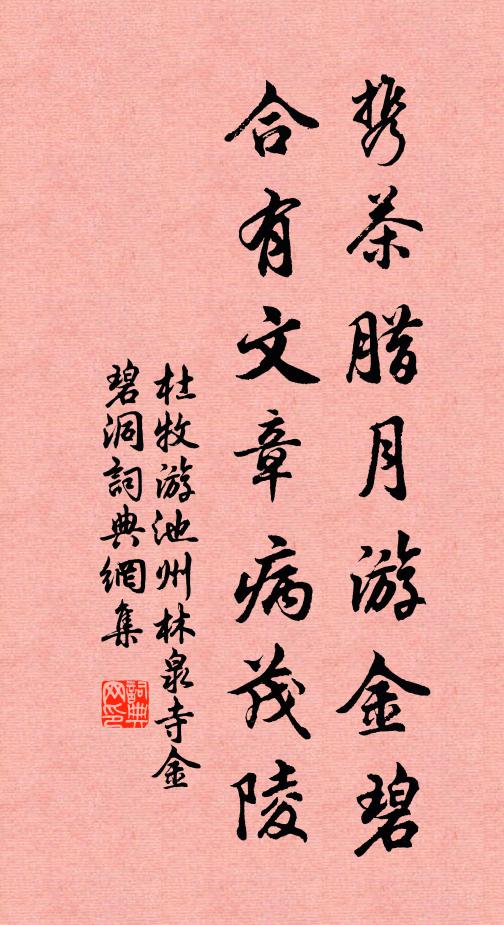 携茶腊月游金碧
合有文章病茂陵
杜牧游池州林泉寺金
碧洞詞典網集
詞典網印